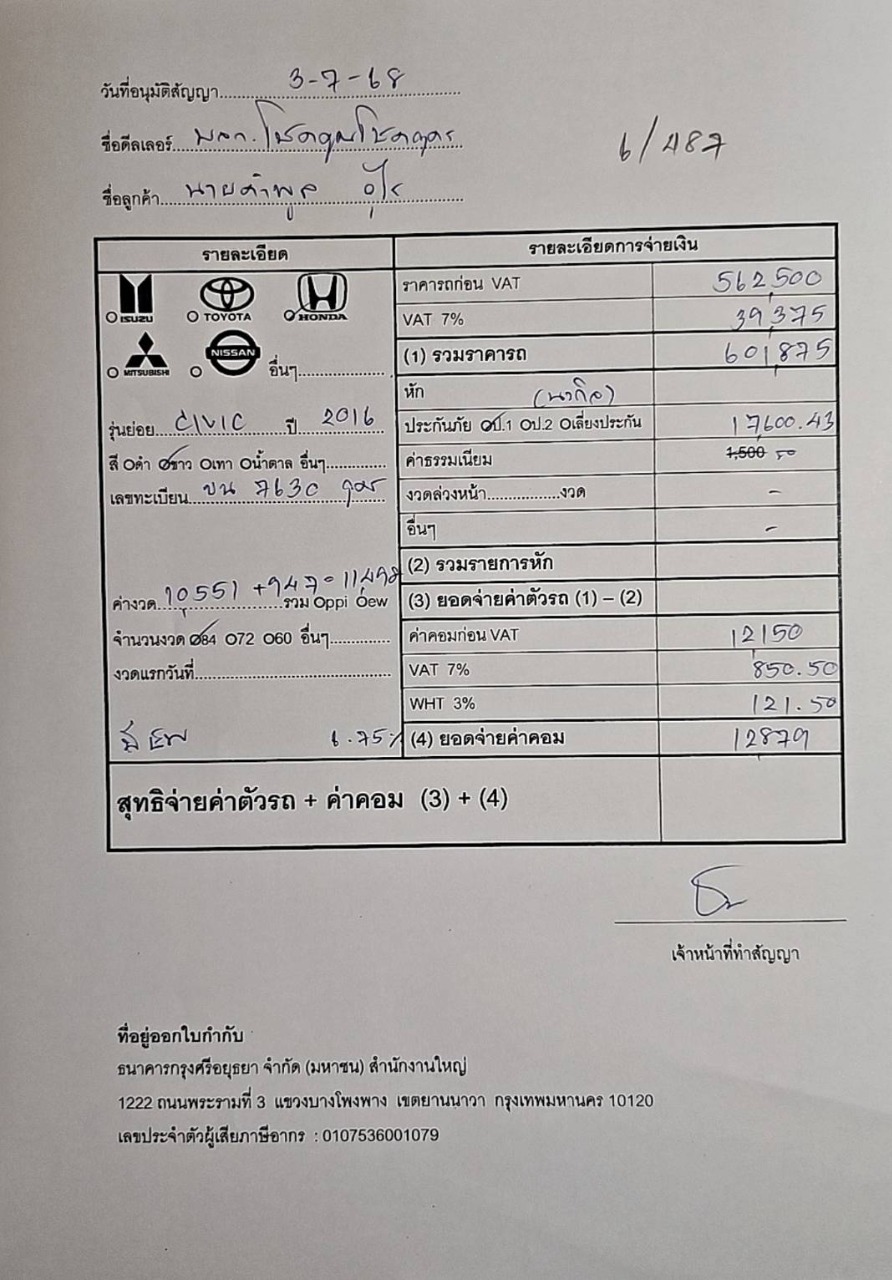 วันที่อนุมัติสัญญา 3-7-68
ชื่อดีลเลอร์ หจก. โชคคูณโชคอุดร
6/487
ชื่อลูกค้า นายคำพูล
รายละเอียด
รายละเอียดการจ่ายเงิน
ISUZU TOYOTA HONDA
ราคารถก่อน VAT 562,500
VAT 7% 39,375
MITSUBISHI NISSAN อื่นๆ
(1) รวมราคารถ 601,875
หัก
รุ่นย่อย CIVIC ปี 2016
ประกันภัย ป.1 ป.2 เลี่ยงประกัน 17,600.43
สี ดำ ขาว เทา น้ำตาล อื่นๆ
ค่าธรรมเนียม 1,500 50
เลขทะเบียน ขน 7630 อุดร
งวดล่วงหน้า งวด -
อื่นๆ -
(2) รวมรายการหัก
ค่างวด 10,551 + 947 = 11,498 รวม ppi ew
(3) ยอดจ่ายค่าตัวรถ (1) – (2)
จำนวนงวด 84 72 60 อื่นๆ
ค่าคอมก่อน VAT 12150
งวดแรกวันที่
VAT 7% 850.50
WHT 3% 121.50
มี EW 6.75%
(4) ยอดจ่ายค่าคอม 12879
สุทธิจ่ายค่าตัวรถ + ค่าคอม (3) + (4)
เจ้าหน้าที่ทำสัญญา
ที่อยู่ออกใบกำกับ
ธนาคารกรุงศรีอยุธยา จำกัด (มหาชน) สำนักงานใหญ่
1222 ถนนพระรามที่ 3 แขวงบางโพงพาง เขตยานนาวา กรุงเทพมหานคร 10120
เลขประจำตัวผู้เสียภาษีอากร : 0107536001079